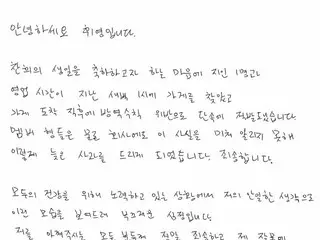 안녕하세요 휘영입니다.
찬희의 생일을 축하하고자 하는 마음에 지인 1명과
영업 시간이 지난 새벽 1시에 가게를 찾았고
가게 도착 직후에 방역수칙 위반으로 단속에 적발됐습니다.
멤버 형들은 물론 회사에도 이 사실을 미처 알리지 못해
이렇게 늦은 사과를 드리게 되었습니다. 죄송합니다.
모두의 건강을 위해 노력하고 있는 상황에서 저의 안일한 생각으로
이런 모습을 보여드려 부끄러운 심정입니다.
저를 아껴주시는 모든 분들께 정말 죄송하고 제 잘못이